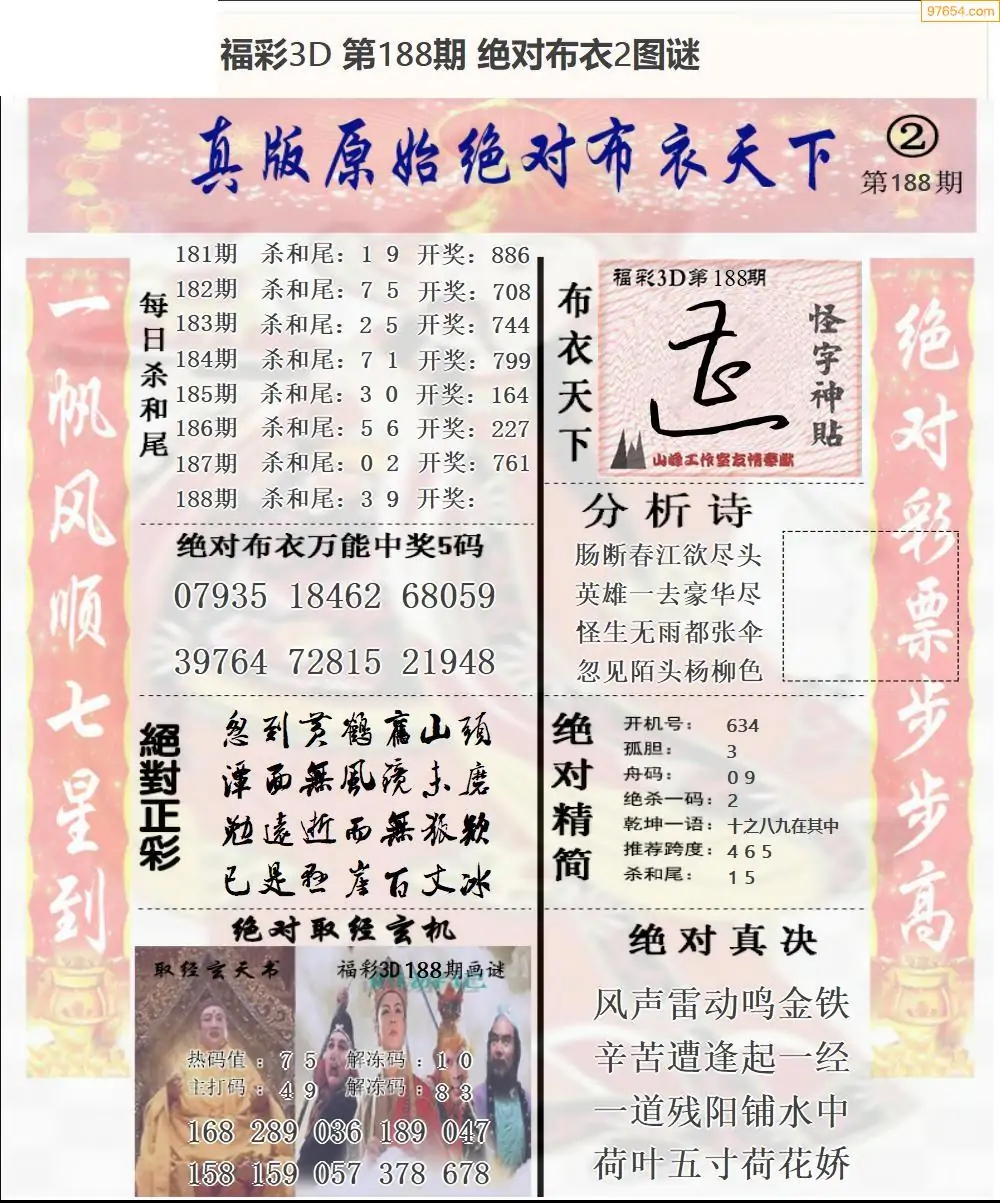 97654.com
福彩3D 第188期 绝对布衣2图谜
真版原始绝对布衣天下
②
第188期
一帆风顺七星到
每日杀和尾
181期 杀和尾：1 9 开奖：886
182期 杀和尾：7 5 开奖：708
183期 杀和尾：2 5 开奖：744
184期 杀和尾：7 1 开奖：799
185期 杀和尾：3 0 开奖：164
186期 杀和尾：5 6 开奖：227
187期 杀和尾：0 2 开奖：761
188期 杀和尾：3 9 开奖：
绝对布衣万能中奖5码
07935 18462 68059
39764 72815 21948
絕對正彩
忽到黄鶴舊山頭
潭面無風镜未磨
勉遠逝而無狐欵
已是悬崖百丈冰
绝对取经玄机
取经玄天书
福彩3D188期画谜
热码值：7 5 解冻码：1 0
主打码：4 9 解冻码：8 3
168 289 036 189 047
158 159 057 378 678
布衣天下
福彩3D第188期
怪字神貼
山峰工作室友情奉献
分析诗
肠断春江欲尽头
英雄一去豪华尽
怪生无雨都张伞
忽见陌头杨柳色
绝对精简
开机号： 634
孤胆： 3
舟码： 0 9
绝杀一码：2
乾坤一语：十之八九在其中
推荐跨度：4 6 5
杀和尾： 1 5
绝对真决
风声雷动鸣金铁
辛苦遭逢起一经
一道残阳铺水中
荷叶五寸荷花娇
绝对彩票步步高